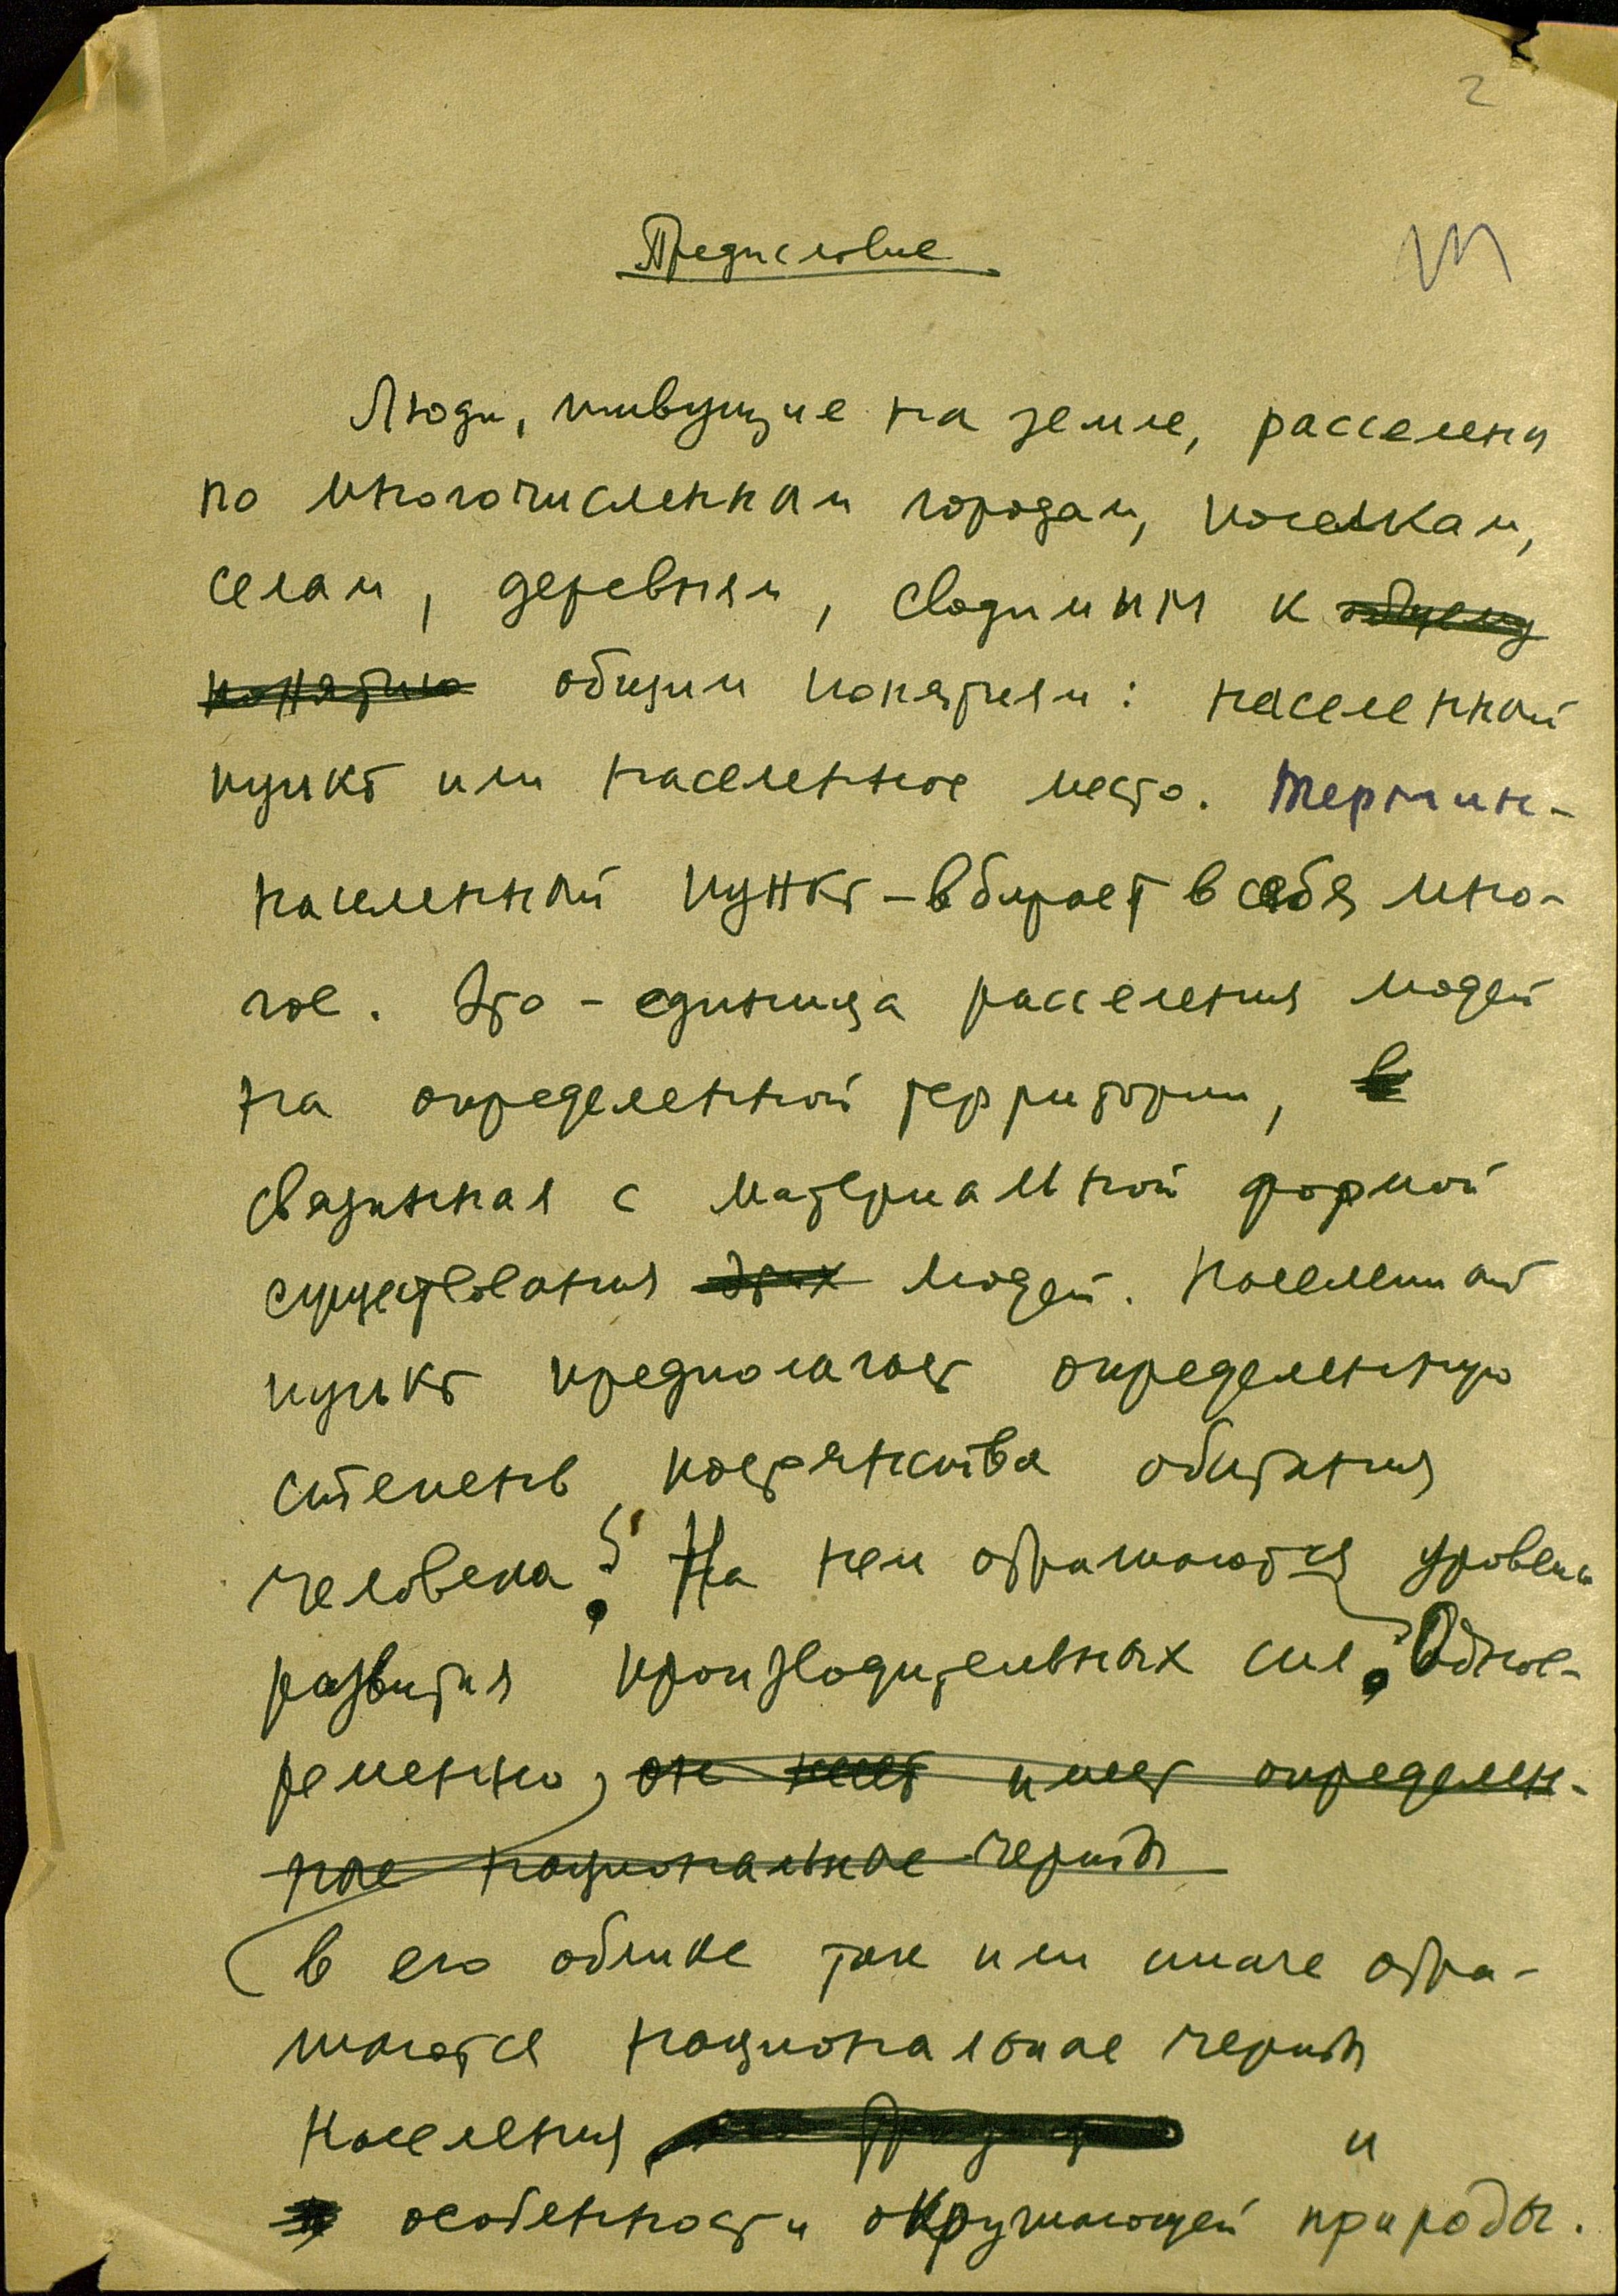 2
Предисловие
Люди, живущие на земле, расселены
по многочисленным городам, поселкам,
селам, деревням, сводимым к общему
понятию общим понятиям: населенный
пункт или населенное место. Термин -
населенный пункт - вбирает в себя мно-
гое. Это - единица расселения людей
на определенной территории, в
связанная с материальной формой
существования этих людей. Населенный
пункт предполагает определенную
степень постоянства обитания
человека. На нем отражаются уровень
развития производительных сил. Однов-
ременно, он имеет определен-
ные национальные черты
в его облике так или иначе отра-
жаются национальные черты
населения и
особенности окружающей природы.